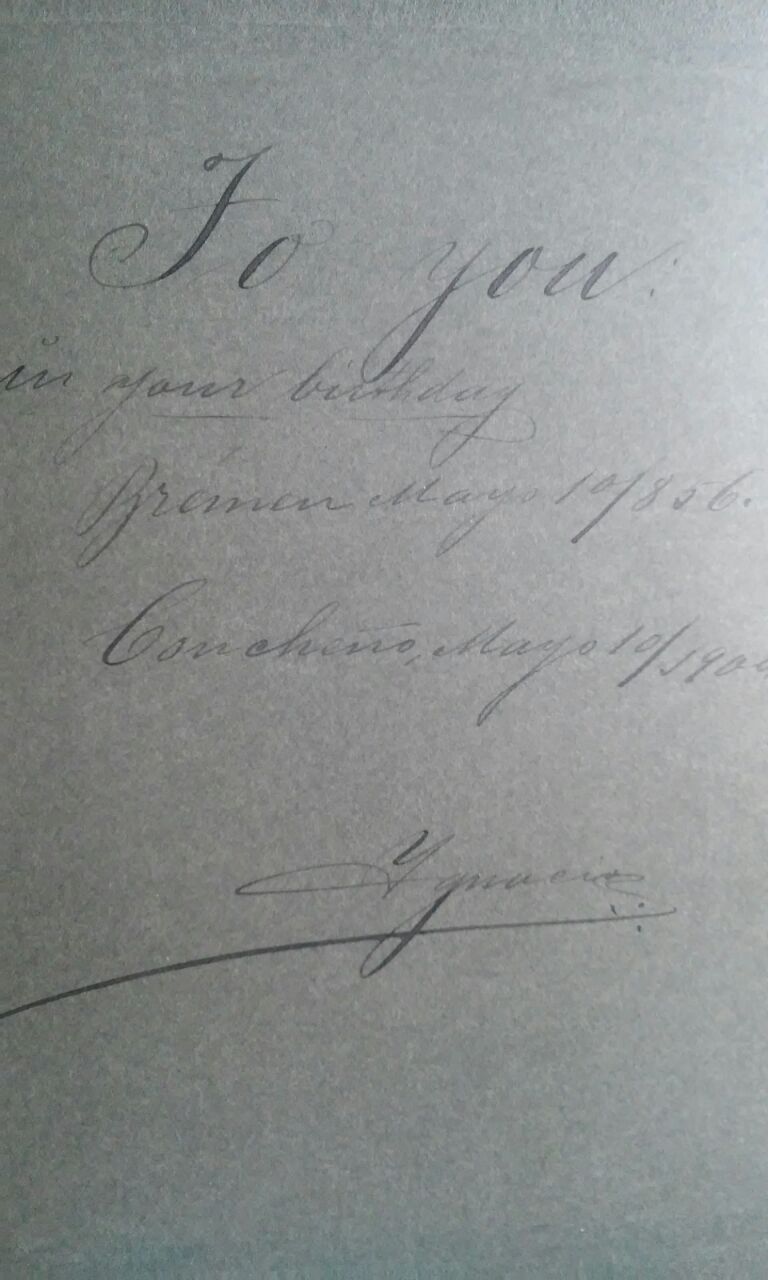 To you:
in your birthday
Bremen Mayo 10/856.
Concheño, Mayo 10/190
Ygnacio